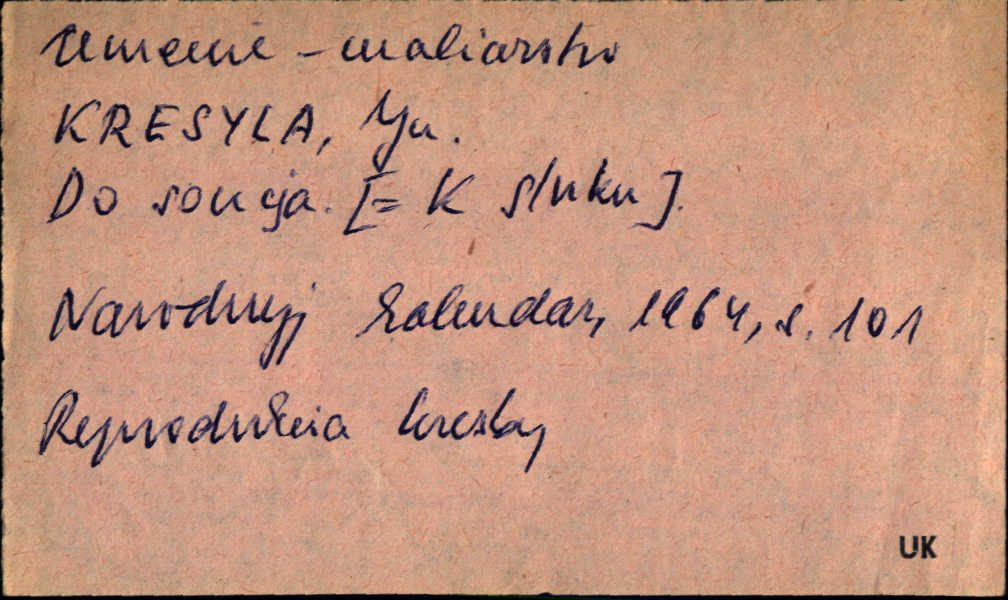 Umenie - maliarstvo
KRESYLA, Yu.
Do soncja. [= K slnku].
Narodnyj kalendar, 1964, s. 101
Reprodukcia kresby
UK